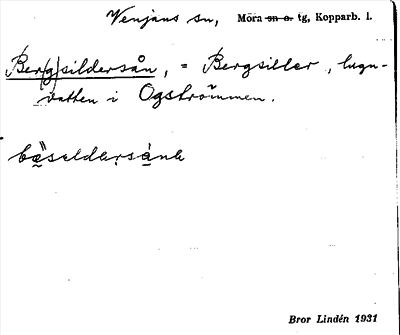 Venjans sn, Mora sn o. tg, Kopparb. l.
Ber(g)sildersån, = Bergsiller, lugn-
vatten i Ogströmmen.
bäseldersånɑ
Bror Lindén 1931